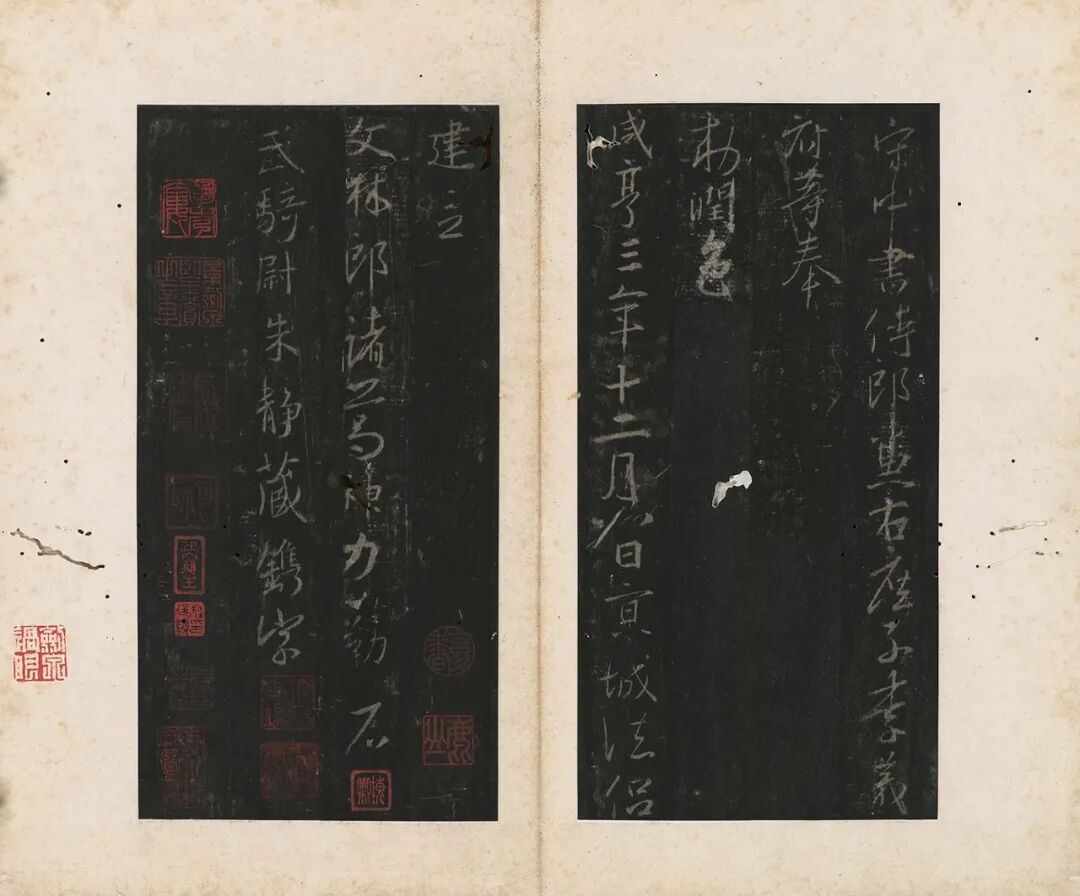 守中書侍郎兼右庶子李義
府等奉
勑潤色
咸亨三年十二月八日京城法侶
建立
文林郎諸葛神力勒石
武騎尉朱靜藏鐫字